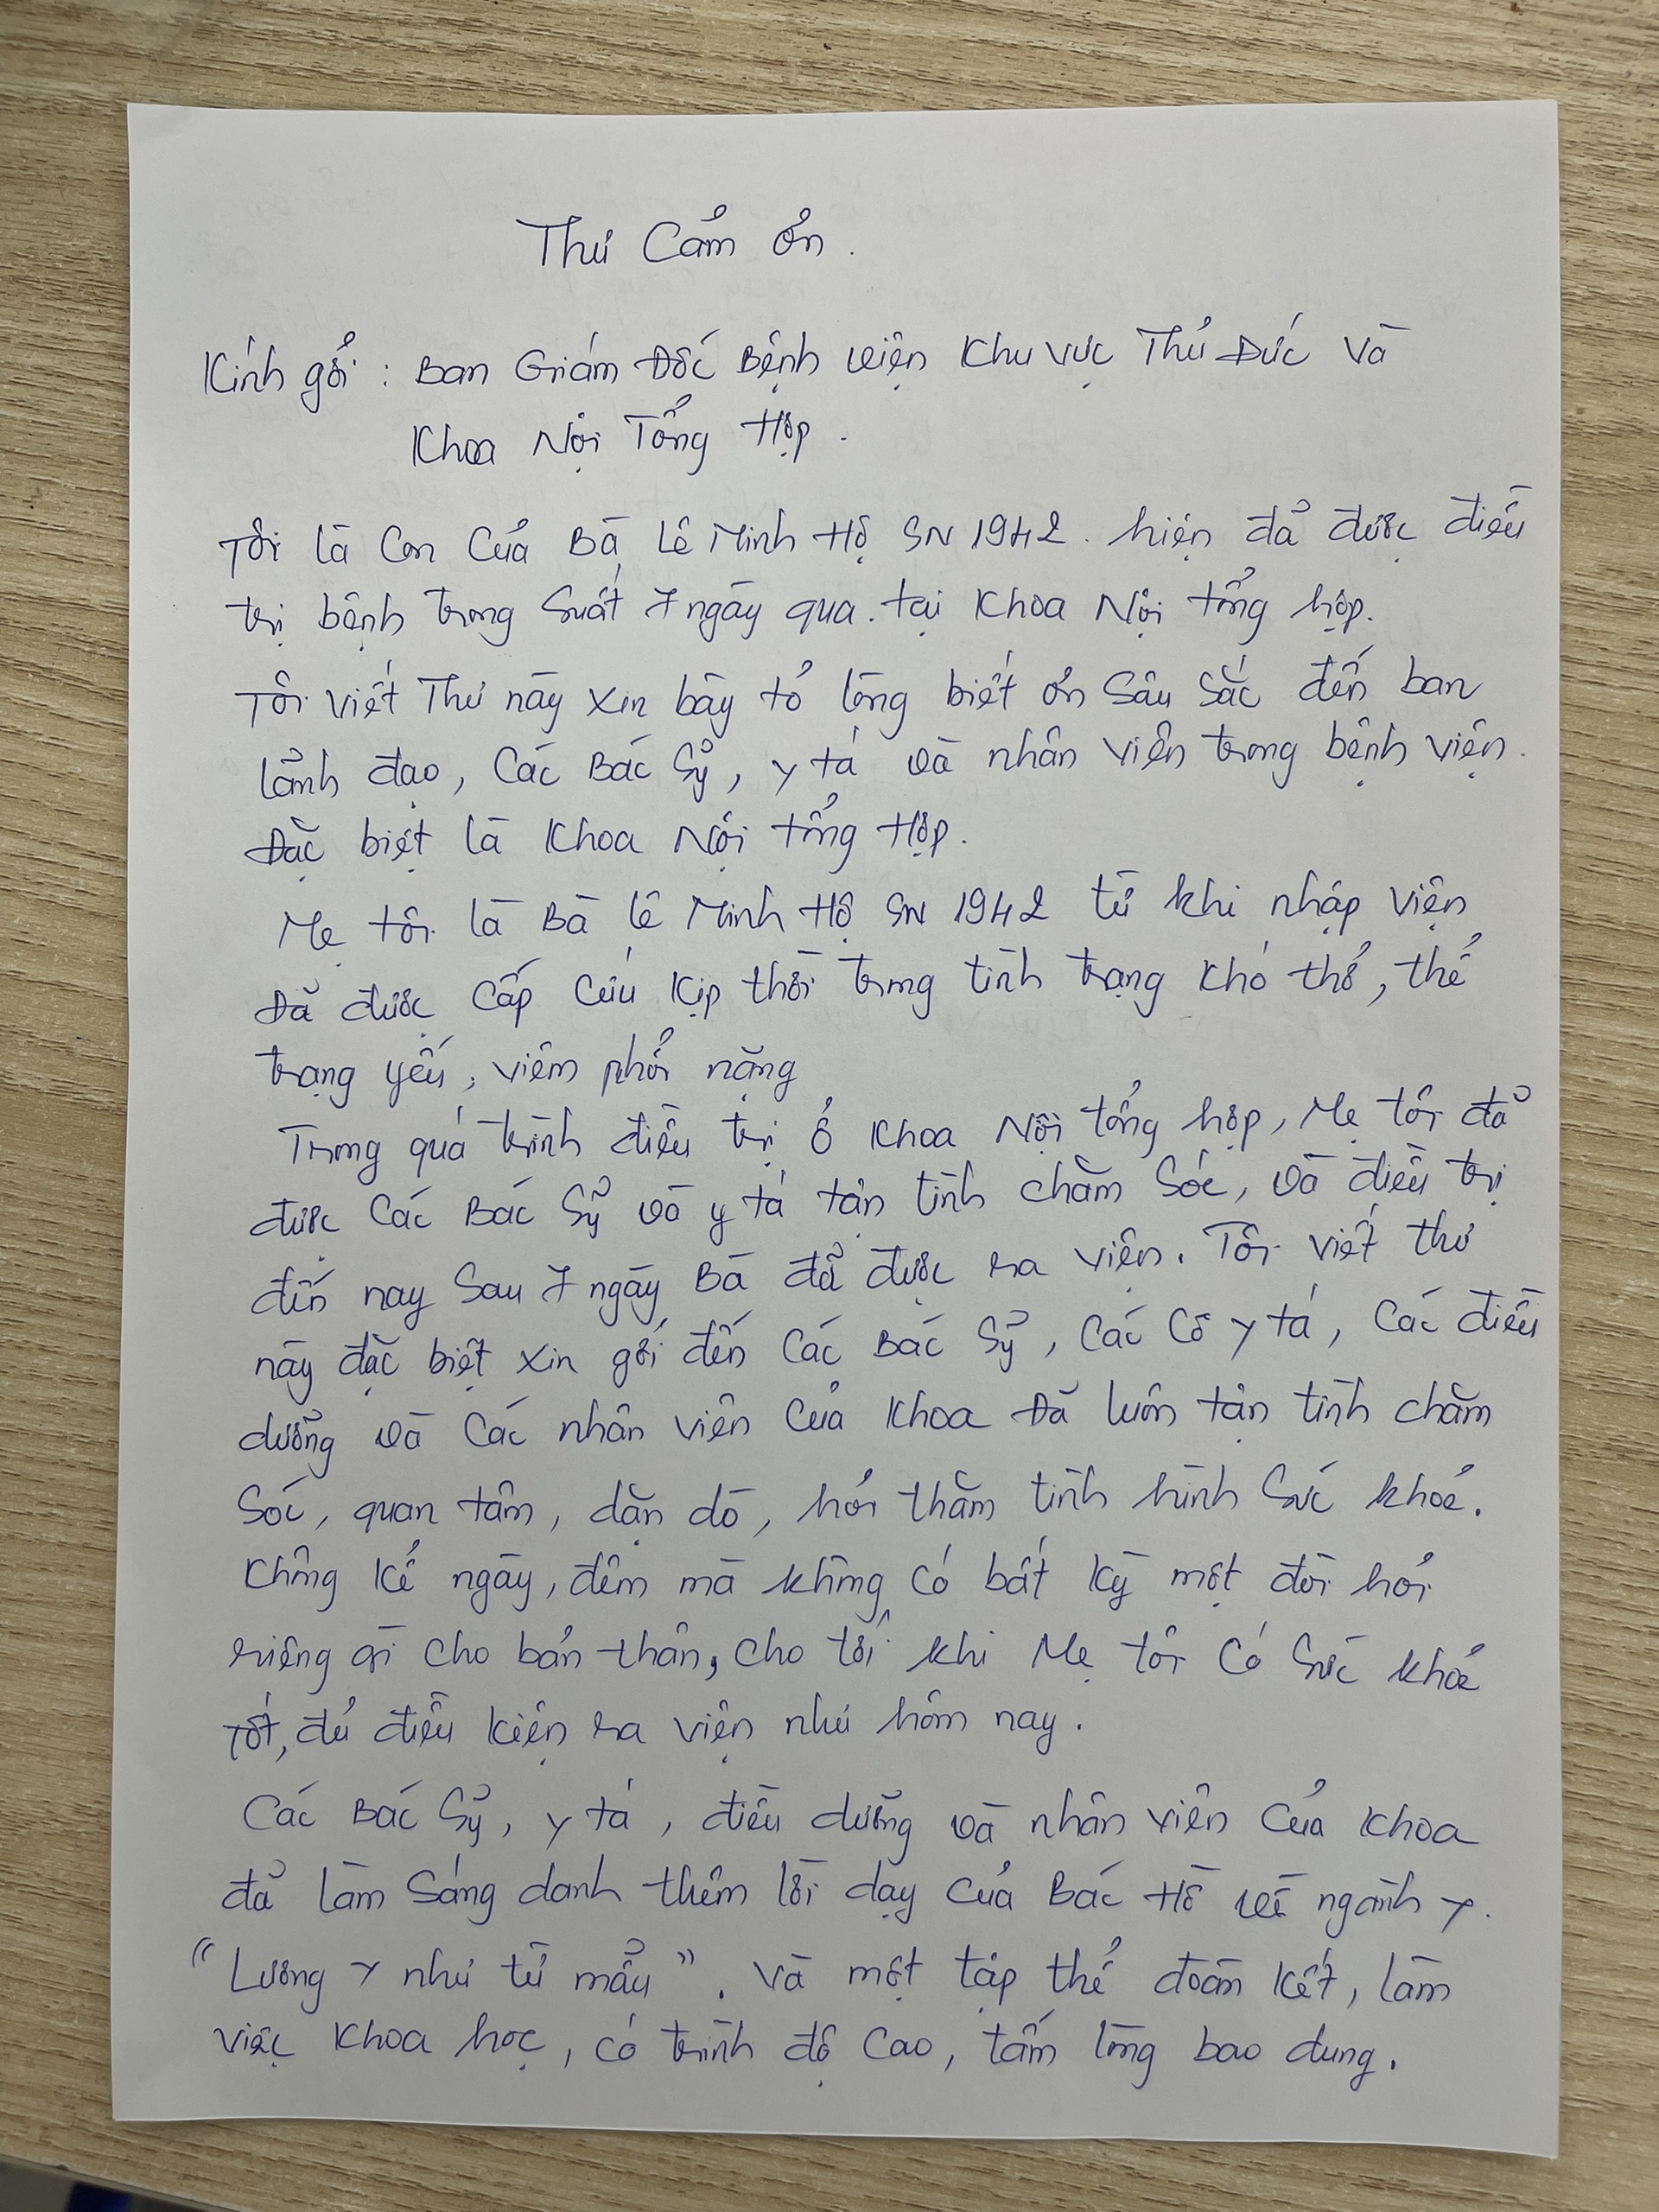 Thư Cảm ơn.
Kính gởi : Ban Giám Đốc Bệnh viện Khu vực Thủ Đức Và
Khoa Nội Tổng Hợp.
Tôi là Con Của Bà Lê Minh Hộ SN 1942. hiện đả được điều
trị bệnh trong Suất 7 ngày qua. tại Khoa Nội tổng hợp.
Tôi viết Thư này xin bày tỏ lòng biết ơn Sâu Sắc đến ban
lảnh đạo, Các Bác Sỷ, y tá và nhân viên trong bệnh viện.
Đặc biệt là Khoa Nội tổng Hợp.
Mẹ tôi là Bà Lê Minh Hộ SN 1942 từ khi nhập viện
Đã được Cấp Cứu Kịp thời trong tình trạng Khó thở, thể
trạng yếu, viêm phổi nặng
Trong quá trình điều trị ở Khoa Nội tổng hợp, Mẹ tôi đả
được Các Bác Sỹ và y tá tận tình chăm Sóc, và điều trị
đến nay Sau 7 ngày Bà đả được ra viện. Tôi viết thư
này đặc biệt xin gởi đến Các Bác Sỹ, Các Cô y tá, Các điều
dưỡng và Các nhân viên Của Khoa Đã luôn tận tình chăm
Sóc, quan tâm, dặn dò, hỏi thăm tình hình Sức khoẻ.
Không Kể ngày, đêm mà không Có bất Kỳ một đòi hỏi
riêng gì Cho bản thân, Cho tới khi Mẹ tôi Có Sức khoẻ
Tốt, đủ điều Kiện ra viện như hôm nay.
Các Bác Sỷ, y tá, điều dưỡng và nhân viên Của Khoa
đả làm Sáng danh thêm lời dạy Của Bác Hồ về ngành y.
"Lương y như từ mẩu". Và một tập thể đoàn Kết, làm
việc Khoa học, có trình độ Cao, tấm lòng bao dung.